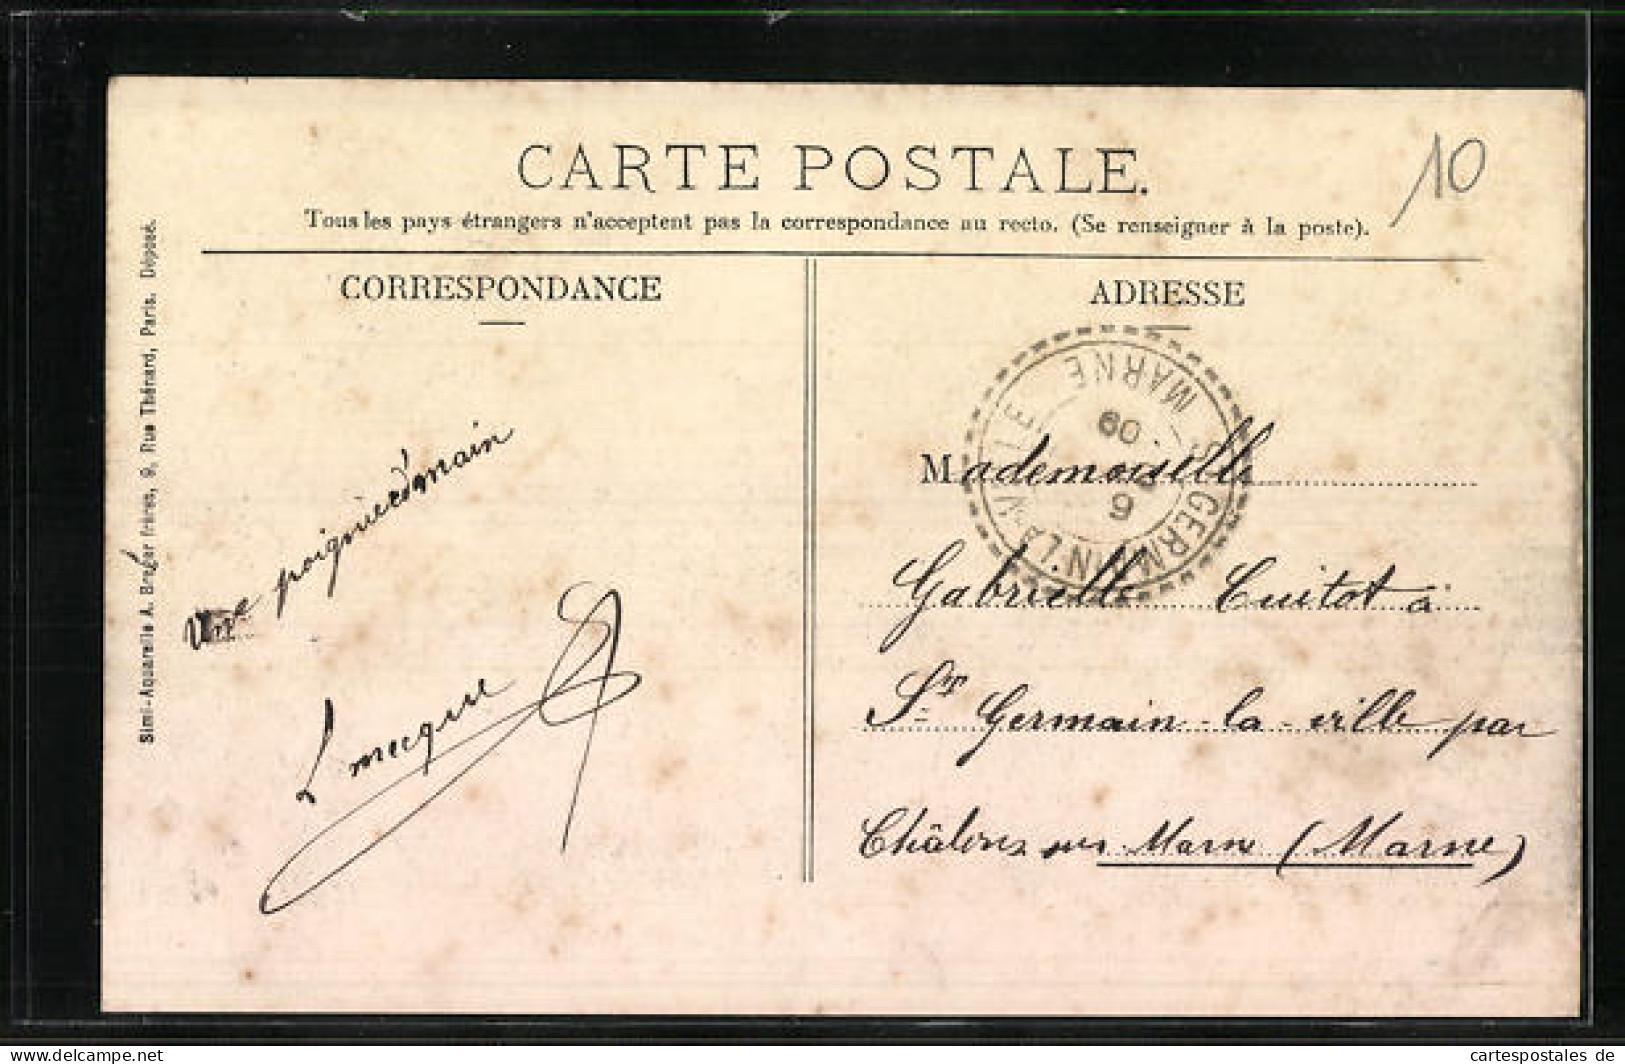 CARTE POSTALE.
10
Tous les pays étrangers n'acceptent pas la correspondance au recto. (Se renseigner à la poste).
CORRESPONDANCE
ADRESSE
Simi-Aquarelle A. Breger frères, 9, Rue Thénard, Paris. Déposé.
Une poignée d'main
MARNE
09
9
GERMAIN LA VILLE
Mademoiselle
Gabrielle Cuitot à
St Germain-la-ville par
Châlons sur Marne (Marne)
cartespostales de
www.cartespostales.de